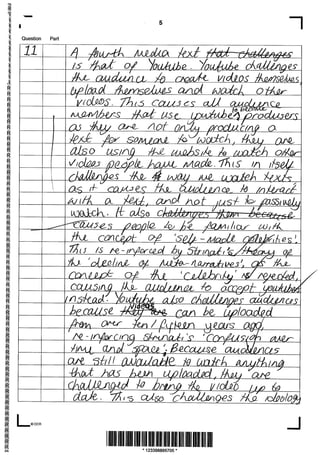 5
Question Part
11 A fourth media text that challenges
is that of Youtube. Youtube challenges
the audience to create videos themselves,
upload themselves and watch other
videos. This causes all audience
members that use youtube to become producers
as they are not only producing a
text for someone to watch, they are
also using the website to watch other
videos people have made. This in itself
challenges the way we watch texts
as it causes the audience to interact
with a text, and not just to passively
watch. It also challenges them because
causes people to be familiar with
the concept of 'self-made celebrities'.
This is re-inforced by Strinati's theory of
the 'decline of meta-narratives', as the
concept of the 'celebrity' is rejected,
causing the audience to accept youtubers
instead. Youtube also challenges audiences
because they are videos can be uploaded
from over ten/fifteen years ago,
re-inforcing Strinati's 'confusion over
time and space'. Because audiences
are still available to watch anything
that has been uploaded, they are
challenged to bring the video up to
date. This also challenges the ideology